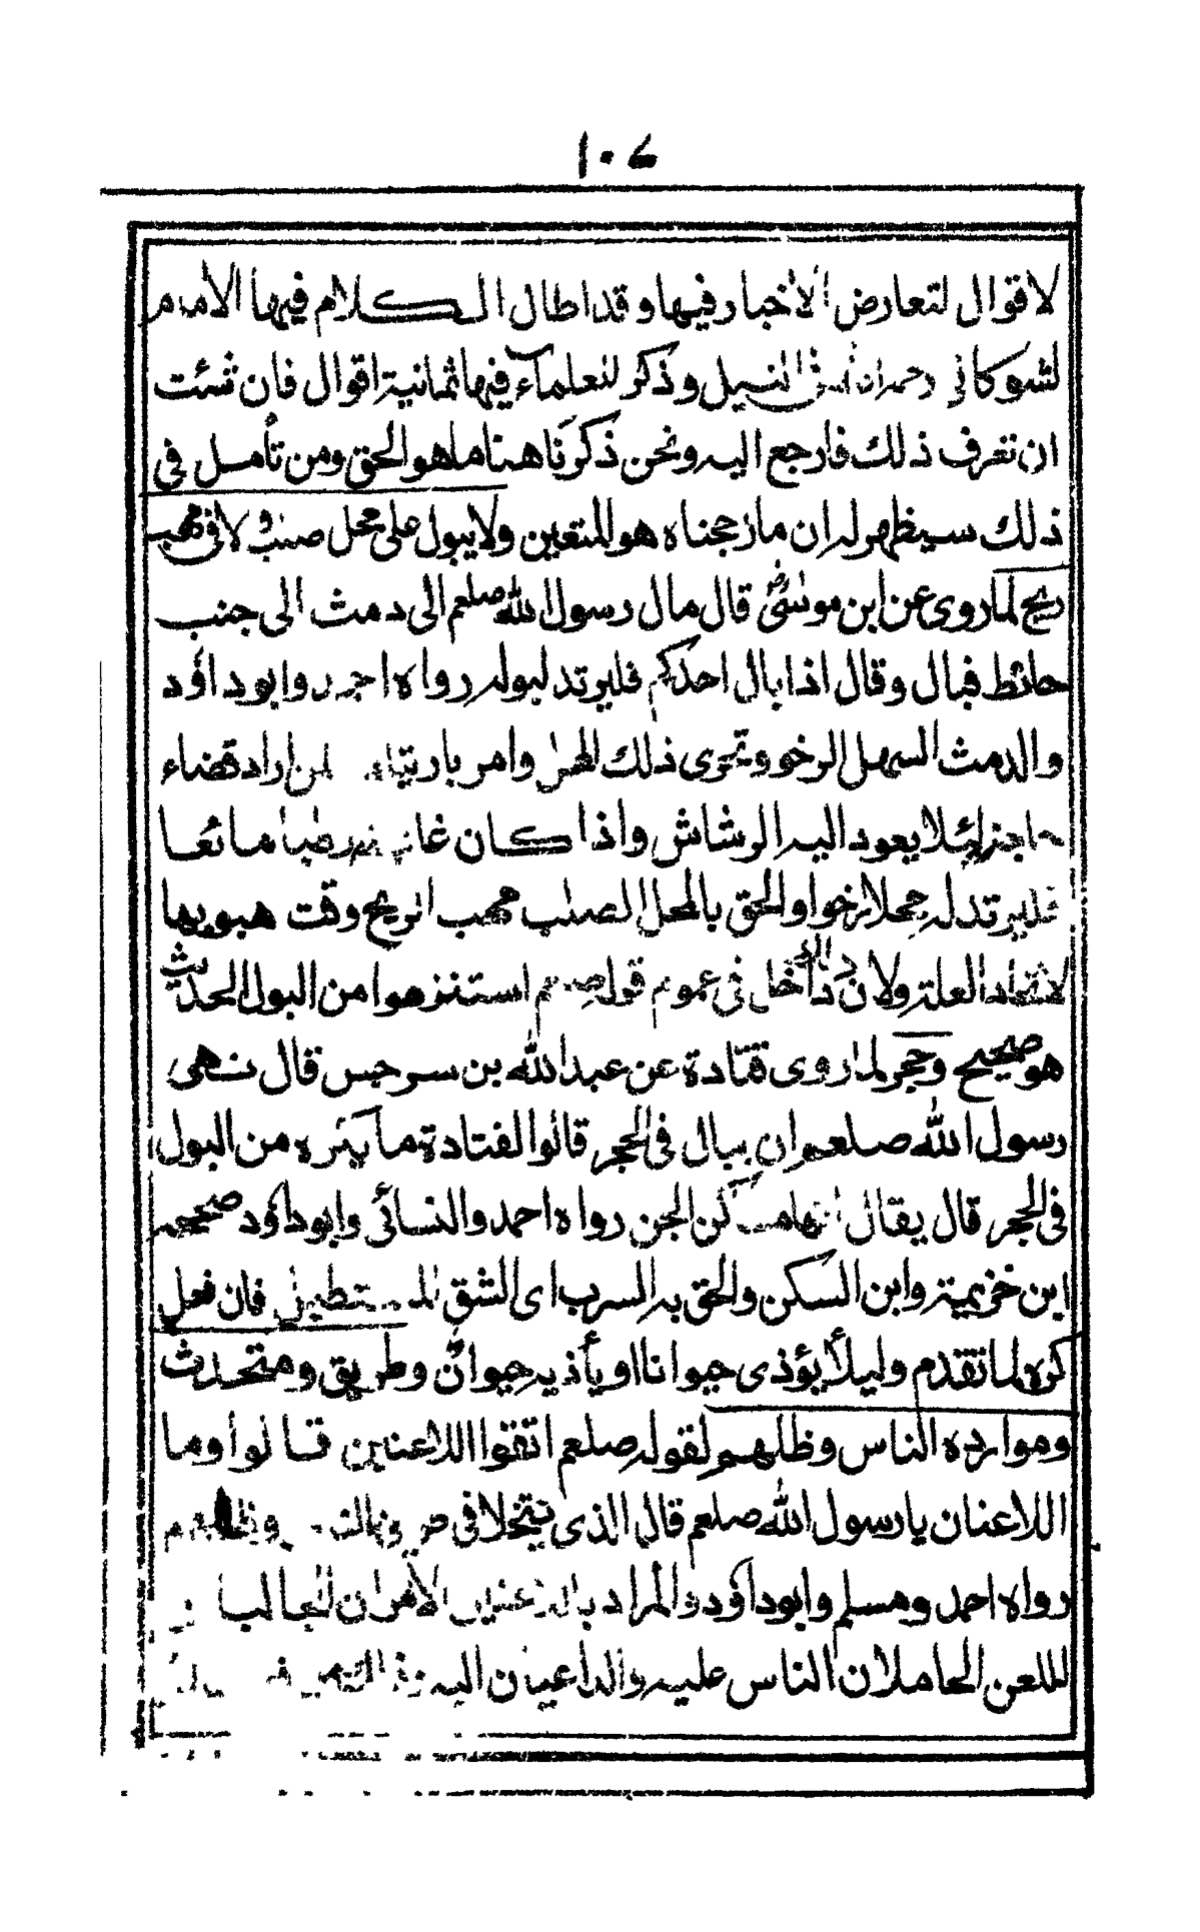 ١٠٦
لاقوال لتعارض الاخبار فيها وقد اطال الكلام فيها الامام
لشوكاني رحمه الله في النيل وذكر للعلماء فيها ثمانية اقوال فان شئت
ان تعرف ذلك فارجع اليه ونحن ذكرنا ههنا ما هو الحق ومن تأمل في
ذلك سيظهر له ان ما رجحناه هو المتعين ولا يبول على محل صلب ولا في مهب
ريح لما روى عن ابن موسى قال مال رسول الله صلعم الى دمث الى جنب
حائط فبال وقال اذا بال احدكم فليرتد لبوله رواه احمد وابو داؤد
والدمث السهل الرخو وتحرى ذلك وامر بارتياد لمن اراد قضاء
حاجته لئلا يعود اليه الرشاش واذا كان مائعا
فليرتد له محلا رخوا والحق بالمحل الصلب مهب الريح وقت هبوبها
لاتحاد العلة ولان داخل في عموم قوله صلعم استنزهوا من البول الحديث
هو صحيح وحجر لما روى قتادة عن عبد الله بن سرجس قال نهى
رسول الله صلعم ان يبال في الحجر قالوا لقتادة ما يكره من البول
في الحجر قال يقال انها مساكن الجن رواه احمد والنسائي وابو داؤد صححه
ابن خزيمة وابن السكن والحق به السرب اى الشق المستطيل فان فعل
كره لما تقدم وليلا يؤذى حيوانا او يأذيه حيوان وطريق ومتحدث
وموارده الناس وظلهم لقوله صلعم اتقوا اللاعنين قالوا وما
اللاعنان يا رسول الله صلعم قال الذى يتخلا في طريق الناس وظلهم
رواه احمد ومسلم وابو داؤد والمراد باللاعنين الامران الجالبان
للعن الحاملان الناس عليه والداعيان اليه